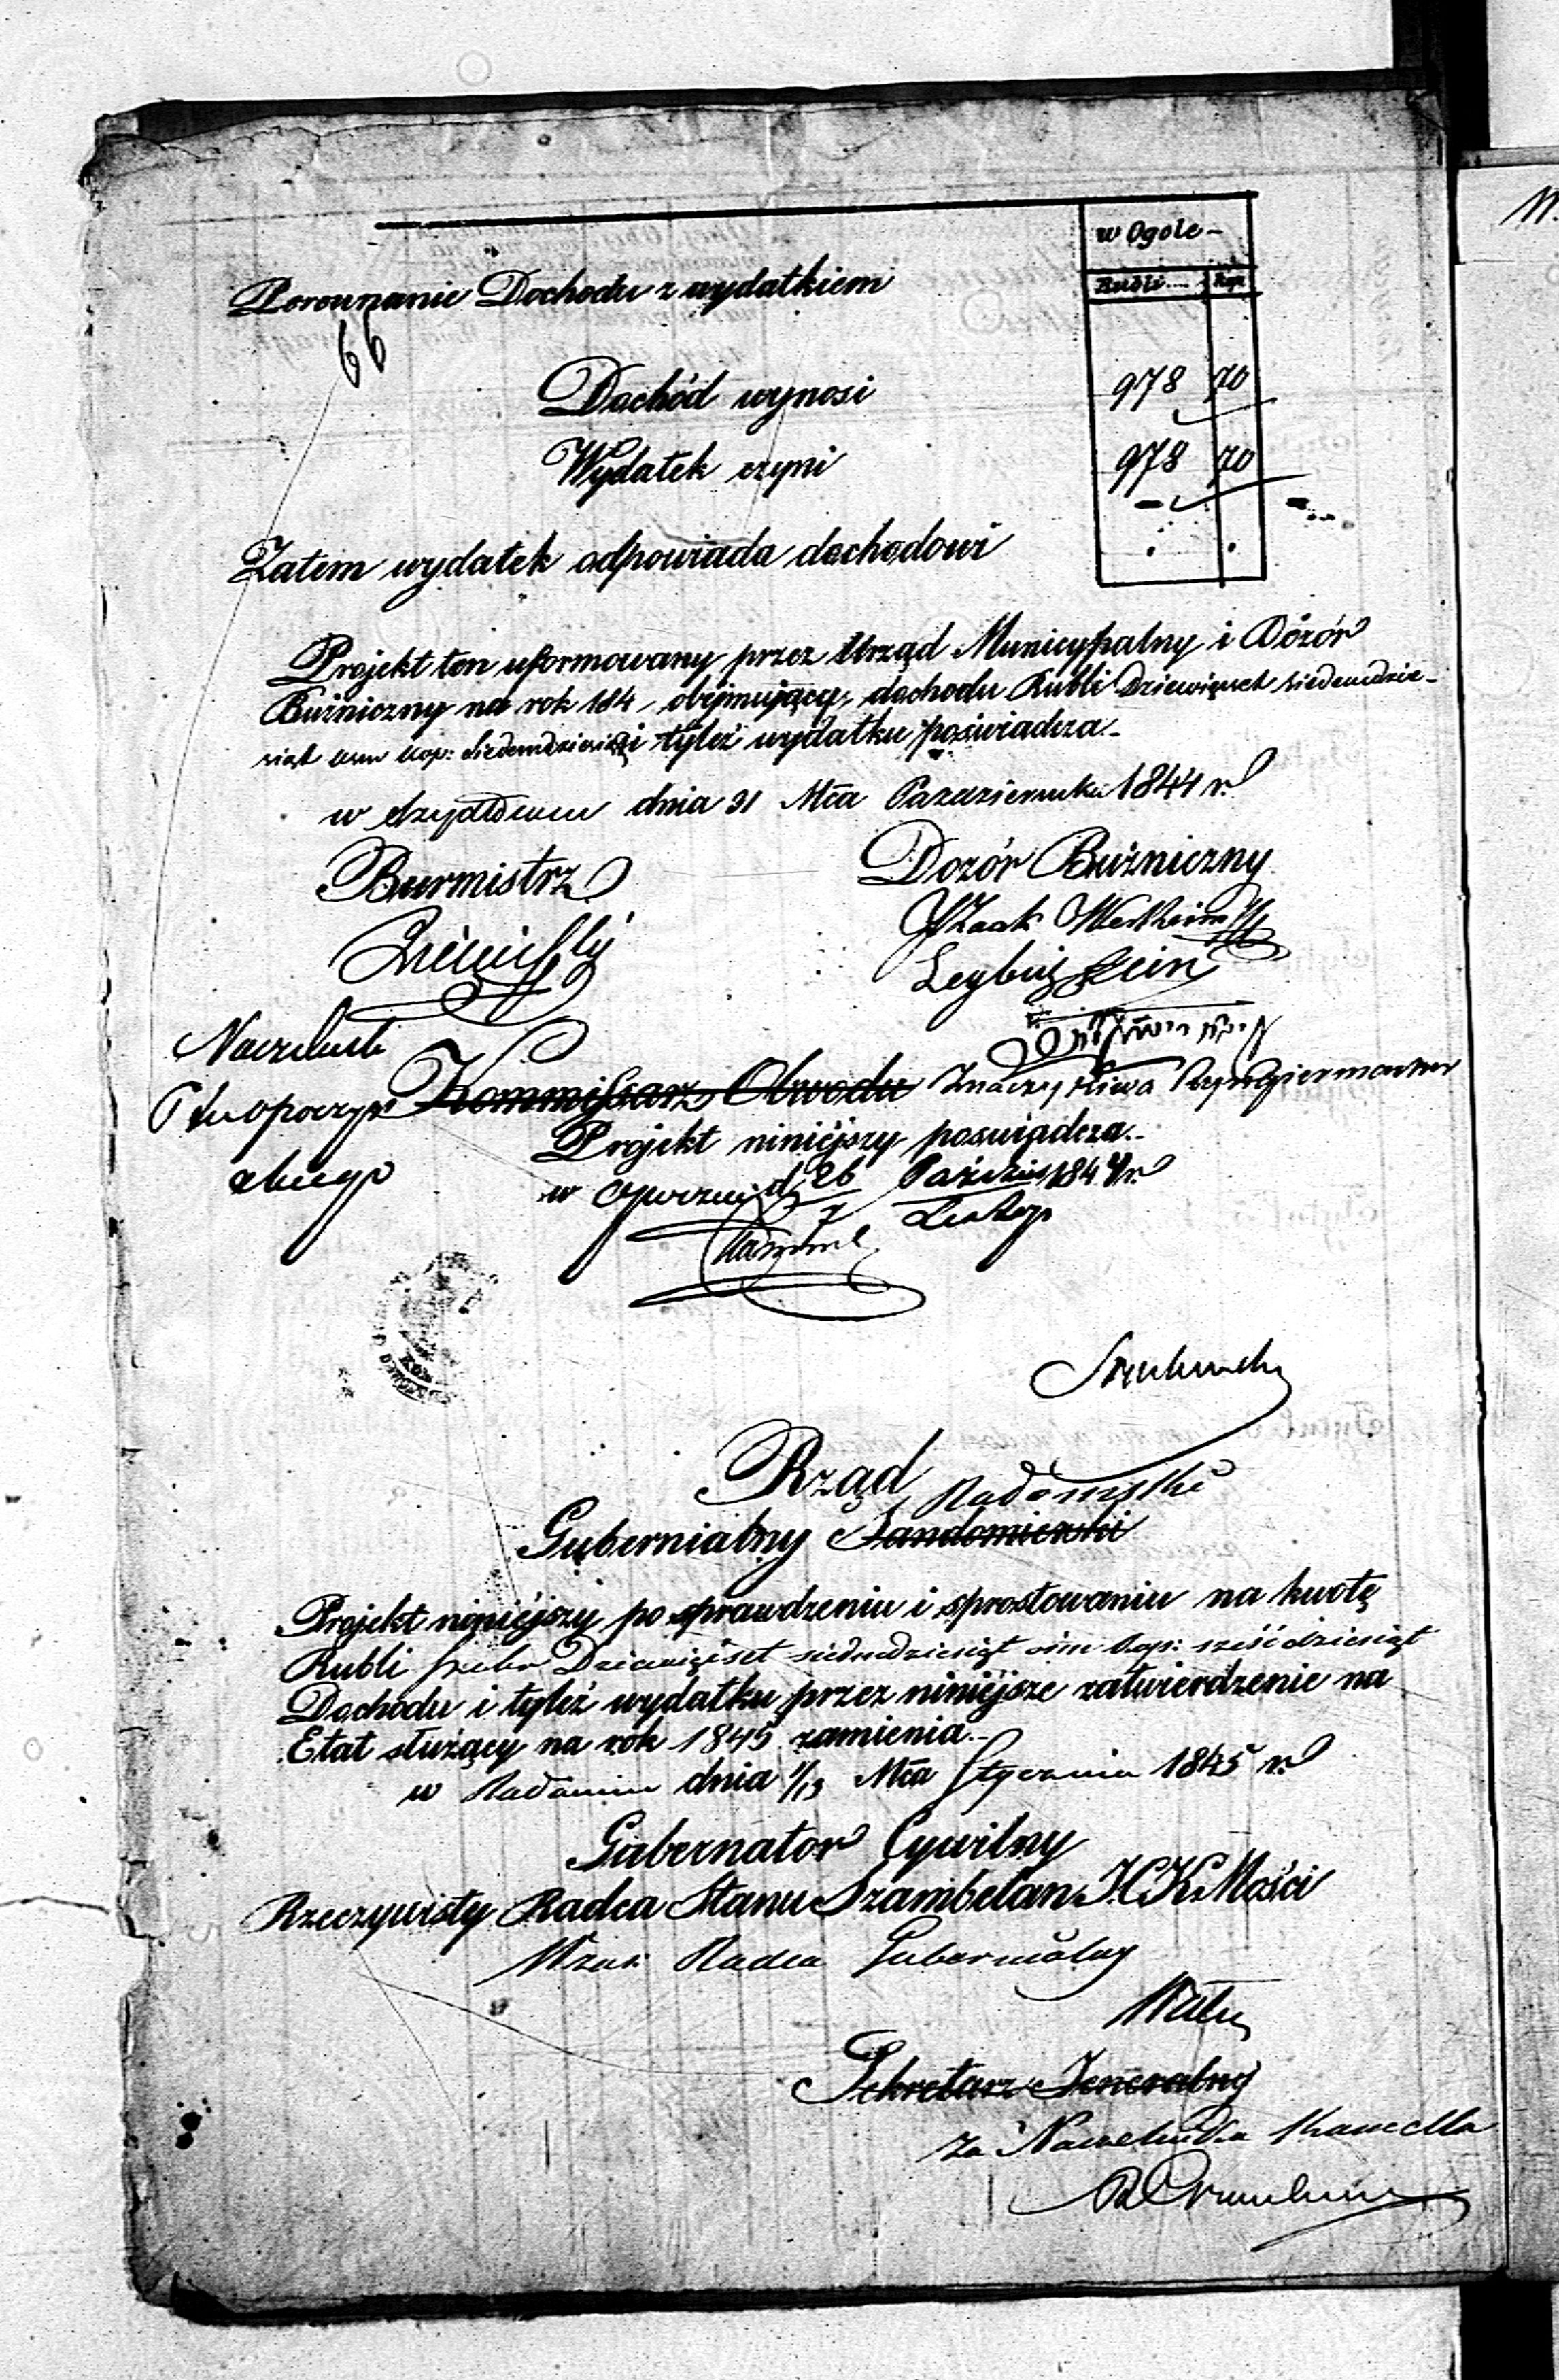 w Ogóle -
Rubli Kop
Porownanie Dochodu z wydatkiem
66
Dochód wynosi 978 70
Wydatek czyni 978 70
Zatem wydatek odpowiada dochodowi
Projekt ten uformowany przez Urząd Municypalny i Dozór
Bużniczny na rok 184 - obejmujący dochodu Rubli Dziewięset siedemdzie-
siąt osm kop: siedemdziesiąt i tyleż wydatku poświadcza -
w Szydłowcu dnia 31 Mca Pazdziernika 1844 r.
Burmistrz Dozór Bużniczny
Leybuś
Naczelnik
Ptu Opoczyń Kommissarz Obwodu Znaczy
skiego Projekt niniéjszy poswiądcza -
w Opocznie d 26 Paździer 1844 r.
7 Listop
Rząd
Radomski
Gubernialny Sandomierski
Projekt niniéjszy po sprawdzeniu i sprostowaniu na kwotę
Rubli srebr Dziewięset siedmdziesiąt ośm kop: sześćdziesiąt
Dochodu i tyleż wydatku przez niniéjsze zatwierdzenie na
Etat służący na rok 1845 zamienia -
w Radomiu dnia 1/13 Mca Stycznia 1845 r.
Gubernator Cywilny
Rzeczywisty Radca Stanu Szambelan J.C.K. Mości
Radca Gubernialny
Sekretarz Jeneralny
za Naczelnika Kancella